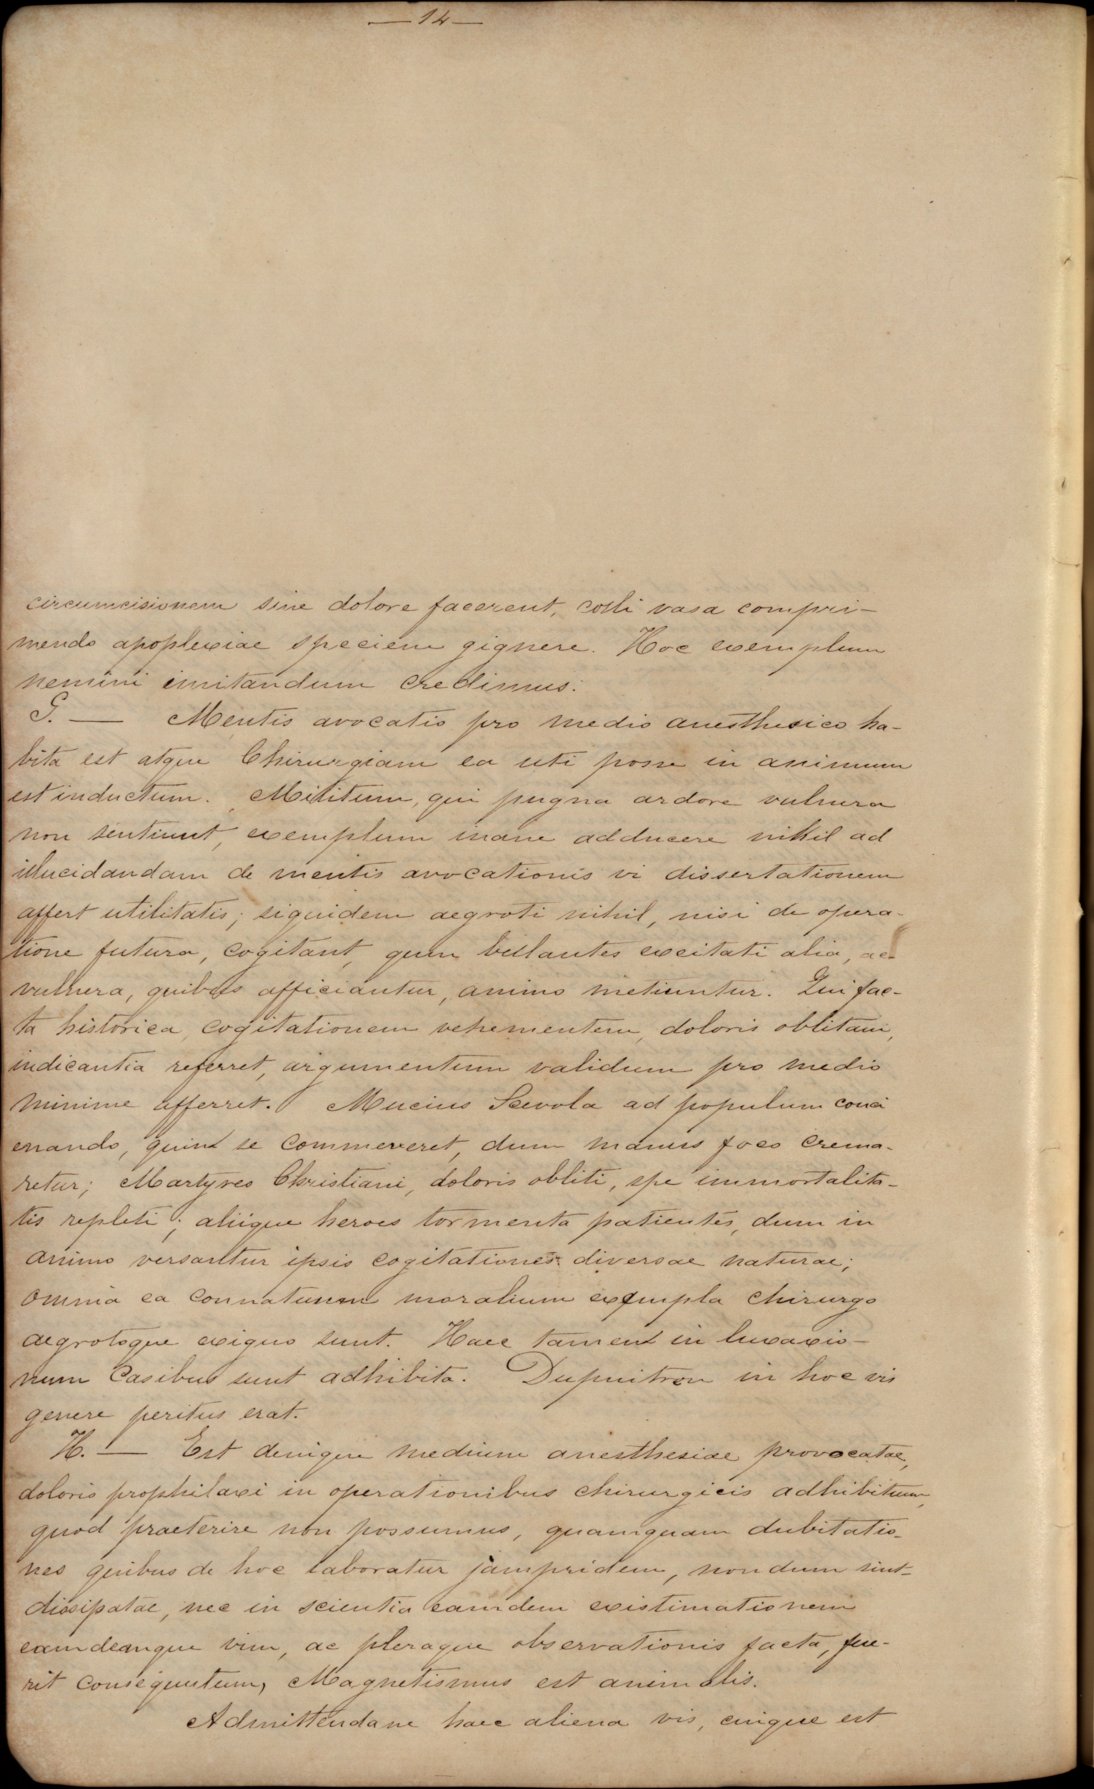 — 14 —
circumcisionem sine dolore facerent, colli vasa compri-
mendo apoplexiae speciem gignere. Hoc exemplum
nemini imitandum credimus.
G. — Mentis avocatio pro medio anesthesico ha-
bita est atque Chirurgiam ea uti posse in animum
est inductum. Militum, qui pugna ardore vulnera
non sentiunt, exemplum inane adducere nihil ad
illucidandam de mentis avocationis vi dissertationem
affert utilitatis; siquidem aegroti nihil, nisi de opera-
tione futura, cogitant, quum bellantes excitati alia, ac
vulnera, quibus afficiantur, animo metiuntur. Qui fac-
ta historica cogitationem vehementem, doloris oblitam,
indicantia referret, argumentum validum pro medio
minime afferret. Mucius Scevola ad populum conci
onando, quin se commoveret, dum manus foco crema-
retur; Martyres Christiani, doloris obliti, spe immortalita-
tis repleti; aliique heroes tormenta patientes, dum in
animo versantur ipsis cogitationes diversae naturae;
omnia ea connatuum moralium exempla chirurgo
aegrotoque exiguo sunt. Haec tamen in luxaxio-
num casibus sunt adhibita. Dupuitren in hoc vis
genere peritus erat.
H. — Est denique medium anesthesiae provocatae,
doloris prophilaxi in operationibus chirurgicis adhibitum,
quod praeterire non possumus, quamquam dubitatio-
nes quibus de hoc laboratur jampridem, nondum sint
dissipatae, nec in scientia eamdem existimationem
eamdemque vim, ac pleraque observationis facta, fue-
rit consequutum, Magnetismus est animalis.
Admittendane haec aliena vis, cuique est